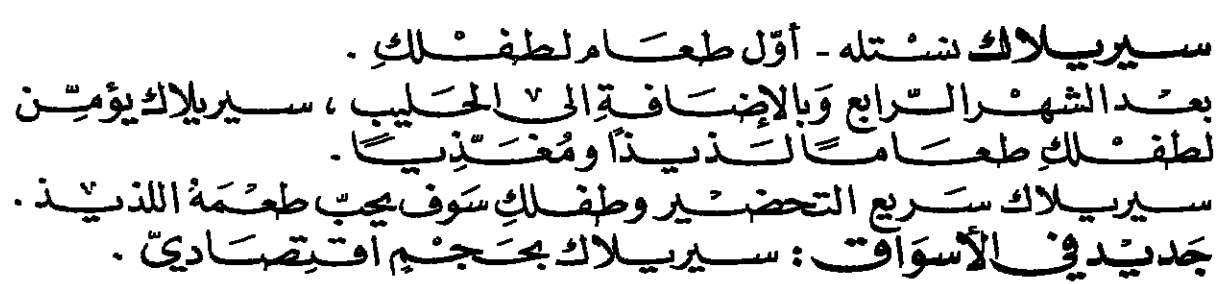 سيريلاك نستله - أوّل طعَام لطفْلكِ .
بعْد الشهْر الرّابع وَبالإضَافةِ إلى الحَليب ، سيريلاك يؤمّن
لطفْلكِ طعَامًا لَذيذًا ومُغَذّيًا .
سيريلاك سَريع التحضيْر وطفلكِ سَوف يحبّ طعْمَهُ اللذيذ .
جَديْد في الأسوَاق : سيريلاك بحَجْمٍ اقتِصَاديّ .